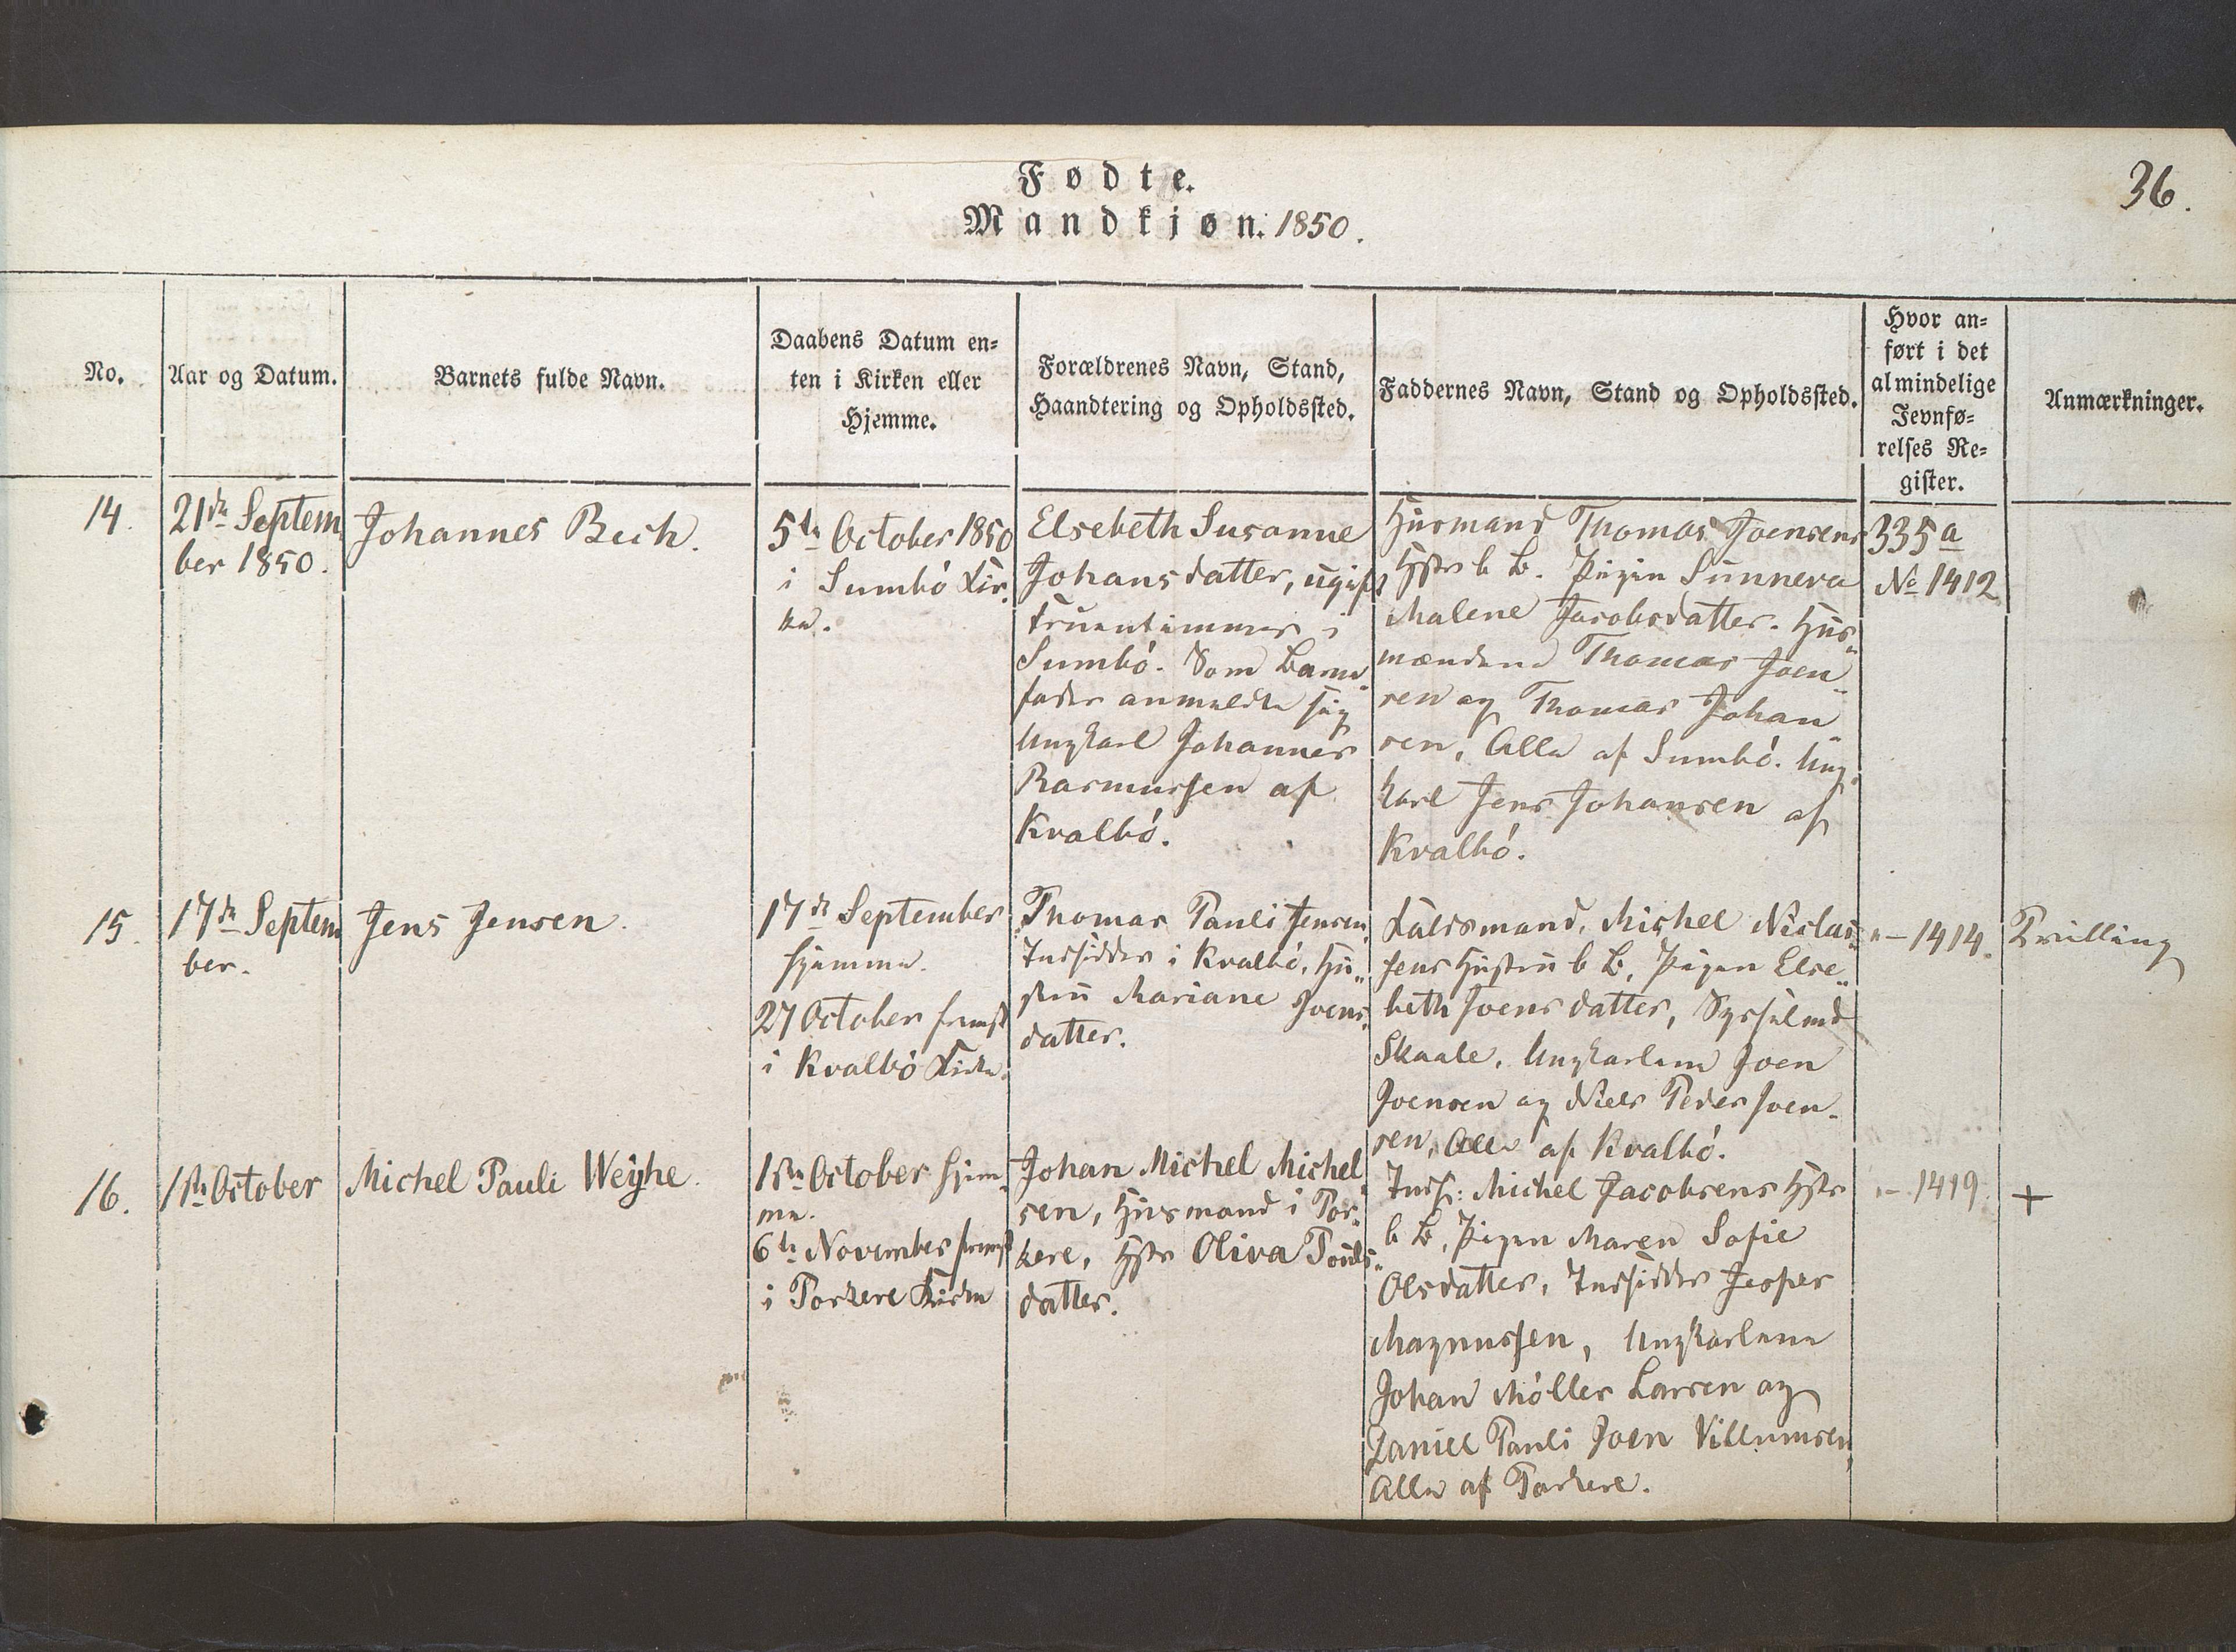 Fødte.
Mandkjøn. 1850.
36.
No.
Aar og Datum.
Barnets fulde Navn.
Daabens Datum en-
ten i Kirken eller
Hjemme.
Forældrenes Navn, Stand,
Haandtering og Opholdssted.
Faddernes Navn, Stand og Opholdssted.
Hvor an-
ført i det
almindelige
Jevnfø-
relses Re-
gister.
Anmærkninger.
14.
21de Septem
ber 1850.
Johannes Bech.
5te October 1850
i Sumbó Kir-
ke.
Elsebeth Susanne
Johansdatter, ugift
Fruentimmer i
Sumbó. Som Barne-
fader anmeldte sig
Ungkarl Johannes
Rasmussen af
Kvalbó.
Husmand Thomas Joensens
Hstr b B. Pigen Sunneva
Malene Jacobsdatter. Hus-
mændene Thomas Joen-
sen og Thomas Johan-
sen, Alle af Sumbó. Ung-
karl Jens Johansen af
Kvalbó.
335a
No 1412
15.
17de Septem
ber.
Jens Jensen.
17de September
hjemme.
27 October fremst
i Kvalbó Kirke.
Thomas Pauli Jensen,
Indsidder i Kvalbó, Hu-
stru Mariane Joens-
datter.
Kaldsmand, Michel Niclas-
sens Hustru b B, Pigen Else-
beth Joensdatter, Sysselmd
Skaale, Ungkarlene Joen
Joensen og Niels Peder Joen-
sen, Alle af Kvalbó.
"- 1414.
Tvilling
16.
1ste October
Michel Pauli Weyhe.
1ste October hjem-
me.
6te November fremst
i Porkere Kirke
Johan Michel Michel-
sen, Husmand i Por-
kere, Hstr Oliva Pouls-
datter.
Inds: Michel Jacobsens Hstr
b B, Pigen Maren Sofie
Olsdatter, Indsidder Jesper
Magnussen, Ungkarlene
Johan Móller Larsen og
Daniel Pauli Joen Villumsen,
Alle af Porkere.
"- 1419.
+